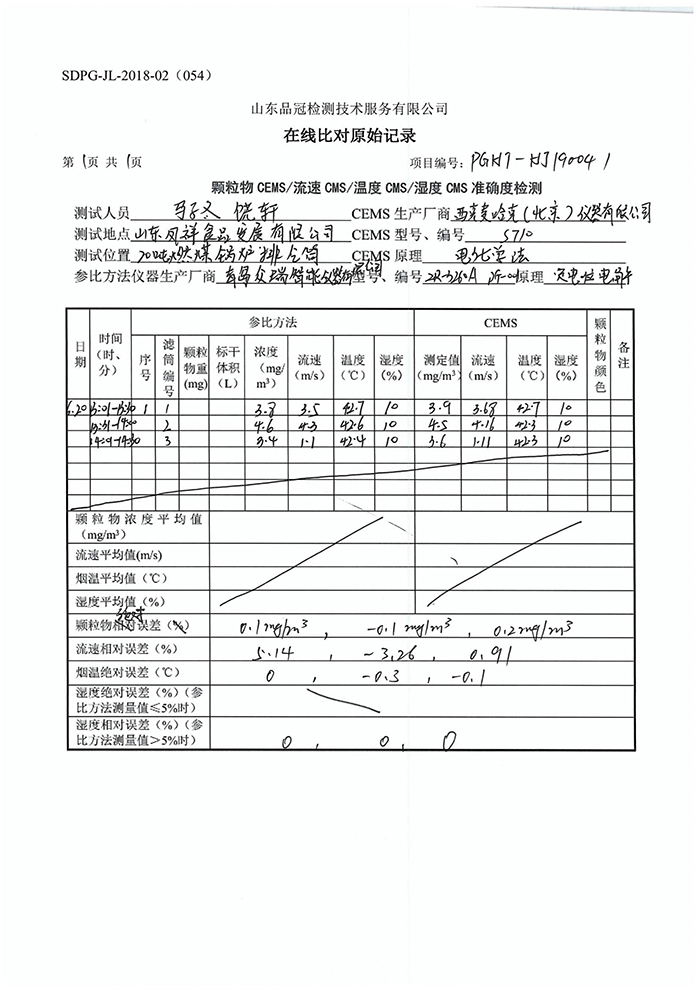 SDPG-JL-2018-02（054）
山东品冠检测技术服务有限公司
在线比对原始记录
第 1页 共 1页 项目编号：PGHJ-HJ190041
颗粒物 CEMS/流速 CMS/温度 CMS/湿度 CMS 准确度检测
测试人员 饶轩 CEMS 生产厂商 西莱克哈克（北京）仪器有限公司
测试地点 山东凤祥食品发展有限公司 CEMS 型号、编号 S710
测试位置 20吨燃煤锅炉排气筒 CEMS 原理 电化学法
参比方法仪器生产厂商 青岛众瑞智能仪器有限公司 型号、编号 ZR-3260A 原理 定电位电解
日期 时间（时、分） 参比方法 CEMS 颗粒物颜色 备注
序号 滤筒编号 颗粒物重(mg) 标干体积（L） 浓度（mg/m³） 流速（m/s） 温度（℃） 湿度（%） 测定值（mg/m³） 流速（m/s） 温度（℃） 湿度（%）
6.20 13:01-13:30 1 1 3.8 3.5 42.7 10 3.9 3.68 42.7 10
13:31-14:00 2 4.6 4.3 42.6 10 4.5 4.16 42.3 10
14:01-14:30 3 3.4 1.1 42.4 10 3.6 1.11 42.3 10
颗粒物浓度平均值（mg/m³）
流速平均值(m/s)
烟温平均值（℃）
湿度平均值（%）
绝对
颗粒物相对误差（%） 0.1mg/m³ , -0.1mg/m³ , 0.2mg/m³
流速相对误差（%） 5.14 , -3.26 , 0.91
烟温绝对误差（℃） 0 , -0.3 , -0.1
湿度绝对误差（%）（参比方法测量值≤5%时）
湿度相对误差（%）（参比方法测量值＞5%时） 0 , 0 , 0